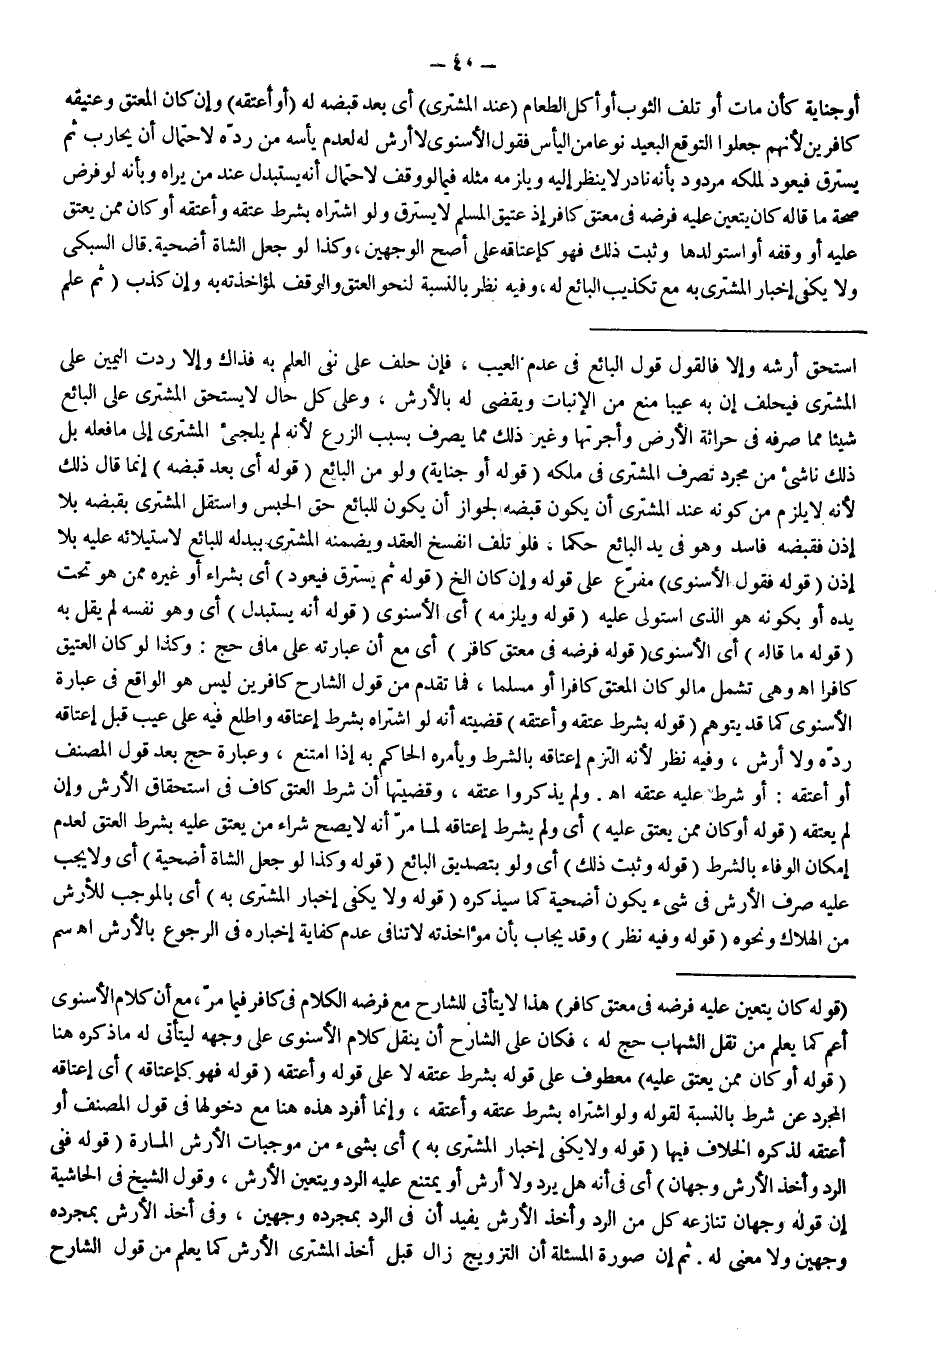 — ٤٠ —
أو جناية كأن مات أو تلف الثوب أو أكل الطعام (عند المشترى) أى بعد قبضه له (أو أعتقه) وإن كان المعتق وعتيقه
كافرين لأنهم جعلوا التوقع البعيد نوعا من اليأس فقول الأسنوى لا أرش له لعدم يأسه من ردّه لاحتمال أن يحارب ثم
يسترق فيعود لملكه مردود بأنه نادر لا ينظر إليه ويلزمه مثله فيما لو وقف لاحتمال أنه يستبدل عند من يراه وبأنه لو فرض
صحة ما قاله كان يتعين عليه فرضه فى معتق كافر إذ عتيق المسلم لا يسترق ولو اشتراه بشرط عتقه وأعتقه أو كان ممن يعتق
عليه أو وقفه أو استولدها وثبت ذلك فهو كإعتاقه على أصح الوجهين ، وكذا لو جعل الشاة أضحية. قال السبكى
ولا يكفى إخبار المشترى به مع تكذيب البائع له ، وفيه نظر بالنسبة لنحو العتق والوقف لمؤاخذته به وإن كذب ( ثم علم
استحق أرشه وإلا فالقول قول البائع فى عدم العيب ، فإن حلف على نفى العلم به فذاك وإلا ردت اليمين على
المشترى فيحلف إن به عيبا منع من الإنبات ويقضى له بالأرش ، وعلى كل حال لا يستحق المشترى على البائع
شيئا مما صرفه فى حراثة الأرض وأجرتها وغير ذلك مما يصرف بسبب الزرع لأنه لم يلجئ المشترى إلى ما فعله بل
ذلك ناشئ من مجرد تصرف المشترى فى ملكه ( قوله أو جناية) ولو من البائع ( قوله أى بعد قبضه ) إنما قال ذلك
لأنه لا يلزم من كونه عند المشترى أن يكون قبضه لجواز أن يكون للبائع حق الحبس واستقل المشترى بقبضه بلا
إذن فقبضه فاسد وهو فى يد البائع حكما ، فلو تلف انفسخ العقد ويضمنه المشترى ببدله للبائع لاستيلائه عليه بلا
إذن ( قوله فقول الأسنوى) مفرّع على قوله وإن كان الخ ( قوله ثم يسترق فيعود ) أى بشراء أو غيره ممن هو تحت
يده أو بكونه هو الذى استولى عليه ( قوله ويلزمه ) أى الأسنوى ( قوله أنه يستبدل ) أى وهو نفسه لم يقل به
( قوله ما قاله ) أى الأسنوى( قوله فرضه فى معتق كافر ) أى مع أن عبارته على مافى حج : وكذا لو كان العتيق
كافرا اه وهى تشمل مالو كان المعتق كافرا أو مسلما ، فما تقدم من قول الشارح كافرين ليس هو الواقع فى عبارة
الأسنوى كما قد يتوهم ( قوله بشرط عتقه وأعتقه ) قضيته أنه لو اشتراه بشرط إعتاقه واطلع فيه على عيب قبل إعتاقه
ردّه ولا أرش ، وفيه نظر لأنه التزم إعتاقه بالشرط ويأمره الحاكم به إذا امتنع ، وعبارة حج بعد قول المصنف
أو أعتقه : أو شرط عليه عتقه اه . ولم يذكروا عتقه ، وقضيتها أن شرط العتق كاف فى استحقاق الأرش وإن
لم يعتقه ( قوله أو كان ممن يعتق عليه ) أى ولم يشرط إعتاقه لما مرّ أنه لايصح شراء من يعتق عليه بشرط العتق لعدم
إمكان الوفاء بالشرط ( قوله وثبت ذلك) أى ولو بتصديق البائع ( قوله وكذا لو جعل الشاة أضحية ) أى ولا يجب
عليه صرف الأرش فى شىء يكون أضحية كما سيذكره ( قوله ولا يكفى إخبار المشترى به ) أى بالموجب للأرش
من الهلاك ونحوه ( قوله وفيه نظر ) وقد يجاب بأن مؤاخذته لاتنافى عدم كفاية إخباره فى الرجوع بالأرش اه سم
(قوله كان يتعين عليه فرضه فى معتق كافر) هذا لا يتأتى للشارح مع فرضه الكلام فى كافر فيما مرّ ، مع أن كلام الأسنوى
أعم كما يعلم من نقل الشهاب حج له ، فكان على الشارح أن ينقل كلام الأسنوى على وجهه ليتأتى له ماذكره هنا
( قوله أو كان ممن يعتق عليه) معطوف على قوله بشرط عتقه لا على قوله وأعتقه ( قوله فهو كإعتاقه ) أى إعتاقه
المجرد عن شرط بالنسبة لقوله ولو اشتراه بشرط عتقه وأعتقه ، وإنما أفرد هذه هنا مع دخولها فى قول المصنف أو
أعتقه لذكره الخلاف فيها ( قوله ولا يكفى إخبار المشترى به ) أى بشىء من موجبات الأرش المارة ( قوله ففى
الرد وأخذ الأرش وجهان ) أى فى أنه هل يرد ولا أرش أو يمتنع عليه الرد ويتعين الأرش ، وقول الشيخ فى الحاشية
إن قوله وجهان تنازعه كل من الرد وأخذ الأرش يفيد أن فى الرد بمجرده وجهين ، وفى أخذ الأرش بمجرده
وجهين ولا معنى له . ثم إن صورة المسئلة أن التزويج زال قبل أخذ المشترى الأرش كما يعلم من قول الشارح